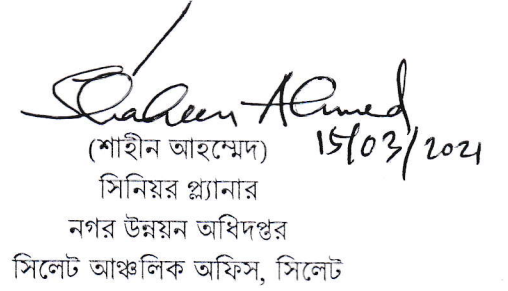 Shaheen Ahmed
15/03/2021
(শাহীন আহম্মেদ)
সিনিয়র প্ল্যানার
নগর উন্নয়ন অধিদপ্তর
সিলেট আঞ্চলিক অফিস, সিলেট